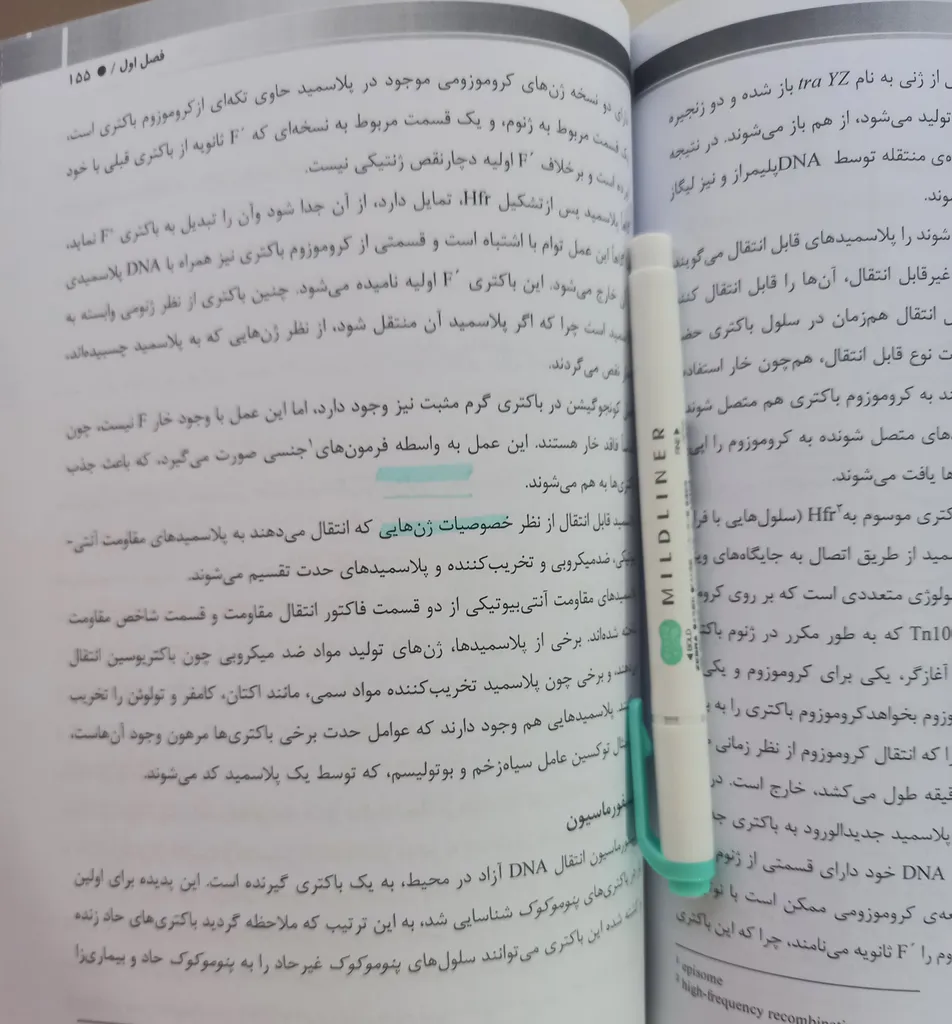 از ژنی به نام tra YZ باز شده و دو زنجیره
تولید می‌شود، از هم باز می‌شوند. در نتیجه
منتقله توسط DNAپلیمراز و نیز لیگاز
شوند را پلاسمیدهای قابل انتقال می‌گویند
غیرقابل انتقال، آن‌ها را قابل انتقال
انتقال هم‌زمان در سلول باکتری
نوع قابل انتقال، هم‌چون خار
به کروموزوم باکتری هم متصل شوند
متصل شونده به کروموزوم را
یافت می‌شوند.
موسوم به Hfr² (سلول‌هایی با
از طریق اتصال به جایگاه‌های
متعددی است که بر روی
که به طور مکرر در ژنوم
آغازگر، یکی برای کروموزوم و
بخواهدکروموزوم باکتری را به
که انتقال کروموزوم از نظر زمانی
طول می‌کشد، خارج است.
پلاسمید جدیدالورود به باکتری
DNA خود دارای قسمتی از ژنوم
کروموزومی ممکن است با
را F´ ثانویه می‌نامند، چرا که این باکتری
¹ episome
² high-frequency
فصل اول / ● ۱۵۵
دو نسخه ژن‌های کروموزومی موجود در پلاسمید حاوی تکه‌ای ازکروموزوم باکتری است،
قسمت مربوط به ژنوم، و یک قسمت مربوط به نسخه‌ای که F´ ثانویه از باکتری قبلی با خود
است و برخلاف F´ اولیه دچارنقص ژنتیکی نیست.
پلاسمید پس ازتشکیل Hfr، تمایل دارد، از آن جدا شود وآن را تبدیل به باکتری F⁺ نماید،
این عمل توام با اشتباه است و قسمتی از کروموزوم باکتری نیز همراه با DNA پلاسمیدی
خارج می‌شود. این باکتری F´ اولیه نامیده می‌شود. چنین باکتری از نظر ژنومی وابسته به
است چرا که اگر پلاسمید آن منتقل شود، از نظر ژن‌هایی که به پلاسمید چسبیده‌اند،
نقص می‌گردند.
کونجوگیشن در باکتری گرم مثبت نیز وجود دارد، اما این عمل با وجود خار F نیست، چون
فاقد خار هستند. این عمل به واسطه فرمون‌های¹جنسی صورت می‌گیرد، که باعث جذب
به هم می‌شوند.
قابل انتقال از نظر خصوصیات ژن‌هایی که انتقال می‌دهند به پلاسمیدهای مقاومت آنتی-
ضدمیکروبی و تخریب‌کننده و پلاسمیدهای حدت تقسیم می‌شوند.
مقاومت آنتی‌بیوتیکی از دو قسمت فاکتور انتقال مقاومت و قسمت شاخص مقاومت
شده‌اند. برخی از پلاسمیدها، ژن‌های تولید مواد ضد میکروبی چون باکتریوسین انتقال
و برخی چون پلاسمید تخریب‌کننده مواد سمی، مانند اکتان، کامفر و تولوئن را تخریب
پلاسمیدهایی هم وجود دارند که عوامل حدت برخی باکتری‌ها مرهون وجود آن‌هاست،
توکسین عامل سیاه‌زخم و بوتولیسم، که توسط یک پلاسمید کد می‌شوند.
انتقال DNA آزاد در محیط، به یک باکتری گیرنده است. این پدیده برای اولین
باکتری‌های پنوموکوک شناسایی شد، به این ترتیب که ملاحظه گردید باکتری‌های حاد زنده
شده این باکتری می‌توانند سلول‌های پنوموکوک غیرحاد را به پنوموکوک حاد و بیماری‌زا
MILDLINER
FINE
BOLD